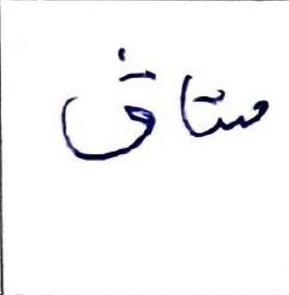 مشتاق